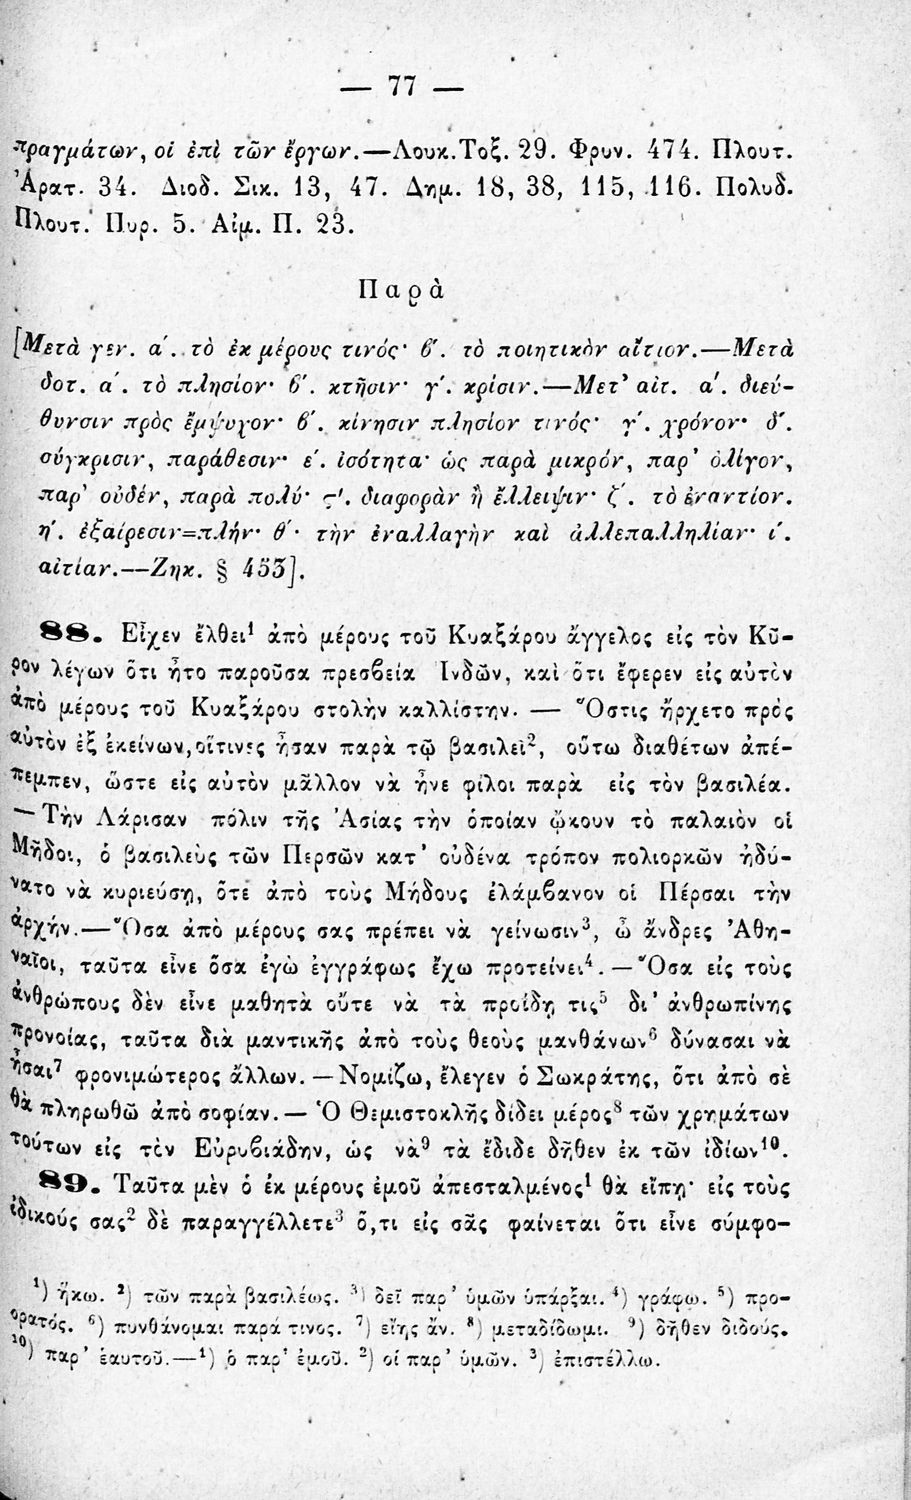 — 77 —
πραγμάτων, οἱ ἐπὶ τῶν ἔργων.—Λουκ.Τοξ. 29. Φρυν. 474. Πλουτ.
Ἀρατ. 34. Διοδ. Σικ. 13, 47. Δημ. 18, 38, 115, 116. Πολυδ.
Πλουτ. Πυρ. 5. Αἰμ. Π. 23.
Παρὰ
[Μετὰ γεν. α΄. τὸ ἐκ μέρους τινός· β΄. τὸ ποιητικὸν αἴτιον.—Μετὰ
δοτ. α΄. τὸ πλησίον· β΄. κτῆσιν· γ΄. κρίσιν.—Μετ’ αἰτ. α΄. διεύ-
θυνσιν πρὸς ἔμψυχον· β΄. κίνησιν πλησίον τινός· γ΄. χρόνον· δ΄.
σύγκρισιν, παράθεσιν· ε΄. ἰσότητα· ὡς παρὰ μικρόν, παρ’ ὀλίγον,
παρ’ οὐδέν, παρὰ πολύ· ς΄. διαφορὰν ἢ ἔλλειψιν· ζ΄. τὸ ἐναντίον.
η΄. ἐξαίρεσιν=πλήν· θ΄· τὴν ἐναλλαγὴν καὶ ἀλλεπαλληλίαν· ι΄.
αἰτίαν.—Ζηκ. § 453].
88. Εἶχεν ἔλθει¹ ἀπὸ μέρους τοῦ Κυαξάρου ἄγγελος εἰς τὸν Κῦ-
ρον λέγων ὅτι ἦτο παροῦσα πρεσβεία Ἰνδῶν, καὶ ὅτι ἔφερεν εἰς αὐτὸν
ἀπὸ μέρους τοῦ Κυαξάρου στολὴν καλλίστην. — Ὅστις ἤρχετο πρὸς
αὐτὸν ἐξ ἐκείνων, οἵτινες ἦσαν παρὰ τῷ βασιλεῖ², οὕτω διαθέτων ἀπέ-
πεμπεν, ὥστε εἰς αὐτὸν μᾶλλον νὰ ἦνε φίλοι παρὰ εἰς τὸν βασιλέα.
—Τὴν Λάρισαν πόλιν τῆς Ἀσίας τὴν ὁποίαν ᾤκουν τὸ παλαιὸν οἱ
Μῆδοι, ὁ βασιλεὺς τῶν Περσῶν κατ’ οὐδένα τρόπον πολιορκῶν ἠδύ-
νατο νὰ κυριεύσῃ, ὅτε ἀπὸ τοὺς Μήδους ἐλάμβανον οἱ Πέρσαι τὴν
ἀρχήν.—Ὅσα ἀπὸ μέρους σας πρέπει νὰ γείνωσιν³, ὦ ἄνδρες Ἀθη-
ναῖοι, ταῦτα εἶνε ὅσα ἐγὼ ἐγγράφως ἔχω προτείνει⁴.—Ὅσα εἰς τοὺς
ἀνθρώπους δὲν εἶνε μαθητὰ οὔτε νὰ τὰ προΐδῃ τις⁵ δι’ ἀνθρωπίνης
προνοίας, ταῦτα διὰ μαντικῆς ἀπὸ τοὺς θεοὺς μανθάνων⁶ δύνασαι νὰ
ἦσαι⁷ φρονιμώτερος ἄλλων.—Νομίζω, ἔλεγεν ὁ Σωκράτης, ὅτι ἀπὸ σὲ
θὰ πληρωθῶ ἀπὸ σοφίαν.— Ὁ Θεμιστοκλῆς δίδει μέρος⁸ τῶν χρημάτων
τούτων εἰς τὸν Εὐρυβιάδην, ὡς νὰ⁹ τὰ ἔδιδε δῆθεν ἐκ τῶν ἰδίων¹⁰.
89. Ταῦτα μὲν ὁ ἐκ μέρους ἐμοῦ ἀπεσταλμένος¹ θὰ εἴπῃ· εἰς τοὺς
ἰδικούς σας² δὲ παραγγέλλετε³ ὅ,τι εἰς σᾶς φαίνεται ὅτι εἶνε σύμφο-
¹) ἥκω. ²) τῶν παρὰ βασιλέως. ³) δεῖ παρ’ ὑμῶν ὑπάρξαι. ⁴) γράφω. ⁵) προ-
ορατός. ⁶) πυνθάνομαι παρά τινος. ⁷) εἴης ἄν. ⁸) μεταδίδωμι. ⁹) δῆθεν διδούς.
¹⁰) παρ’ ἑαυτοῦ.—¹) ὁ παρ’ ἐμοῦ. ²) οἱ παρ’ ὑμῶν. ³) ἐπιστέλλω.